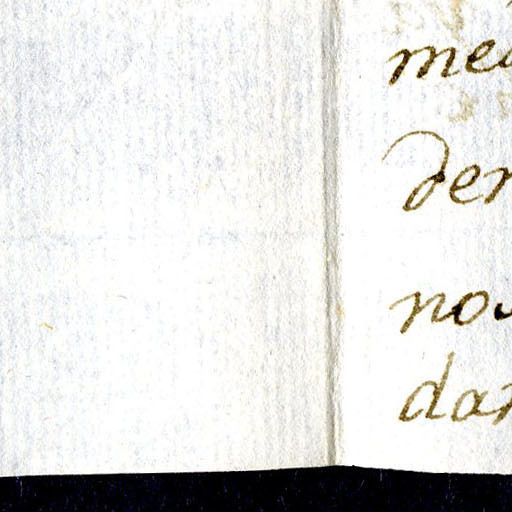 me
der
no
dar